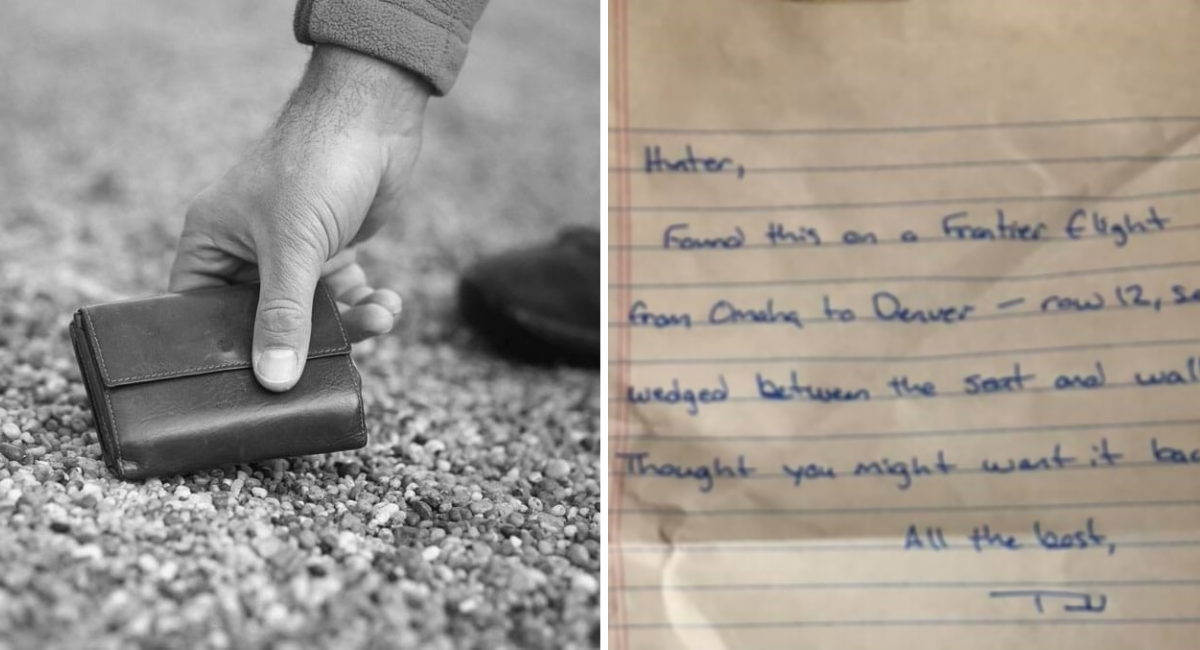 Hunter,
Found this on a Frontier flight
from Omaha to Denver – row 12, se
wedged between the seat and wall
Thought you might want it bac
All the best,